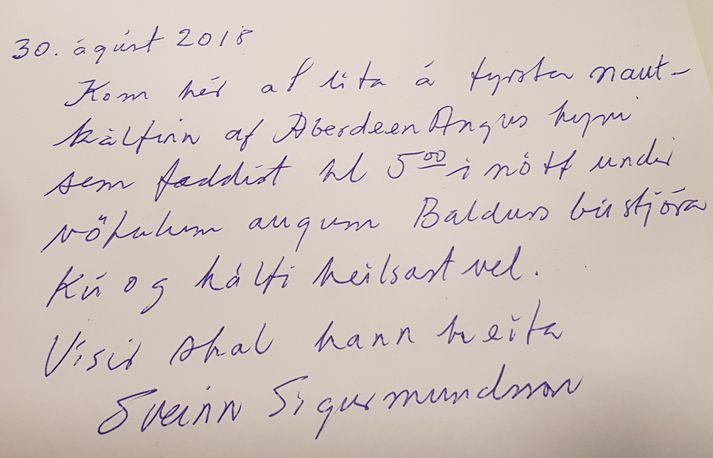 30. ágúst 2018
Kom hér að líta á fyrsta naut-
kálfinn af Aberdeen Angus kyni
sem fæddist kl 5⁰⁰ í nótt undir
vökulum augum Baldurs bústjóra
Kú og kálfi heilsast vel.
Vísir skal hann heita
Sveinn Sigurmundsson